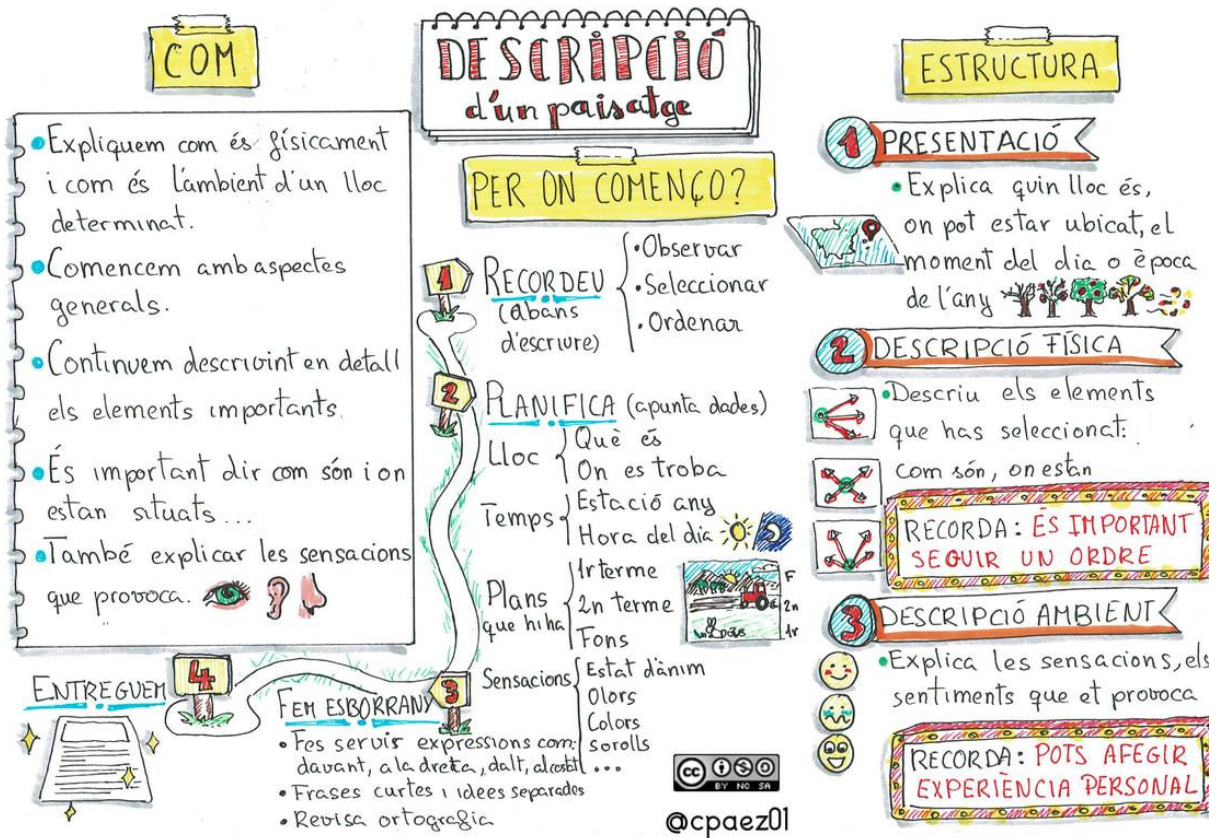 COM
•Expliquem com és físicament
i com és l'ambient d'un lloc
determinat.
•Comencem amb aspectes
generals.
•Continuem descrivint en detall
els elements importants.
•És important dir com són i on
estan situats...
•També explicar les sensacions
que provoca.
DESCRIPCIÓ
d'un paisatge
PER ON COMENÇO?
1
RECORDEU
(abans
d'escriure)
•Observar
•Seleccionar
•Ordenar
2
PLANIFICA (apunta dades)
Lloc
Què és
On es troba
Temps
Estació any
Hora del dia
Plans
que hi ha
1r terme
2n terme
Fons
F
2n
1r
Sensacions
Estat d'ànim
Olors
Colors
sorolls
...
3
FEM ESBORRANY
•Fes servir expressions com:
davant, a la dreta, dalt, al costat
•Frases curtes i idees separades
•Revisa ortografia
4
ENTREGUEM
ESTRUCTURA
1 PRESENTACIÓ
•Explica quin lloc és,
on pot estar ubicat, el
moment del dia o època
de l'any
2 DESCRIPCIÓ FÍSICA
•Descriu els elements
que has seleccionat:
com són, on estan
RECORDA: ÉS IMPORTANT
SEGUIR UN ORDRE
3 DESCRIPCIÓ AMBIENT
•Explica les sensacions, els
sentiments que et provoca
RECORDA: POTS AFEGIR
EXPERIÈNCIA PERSONAL
cc
BY NC SA
@cpaez01